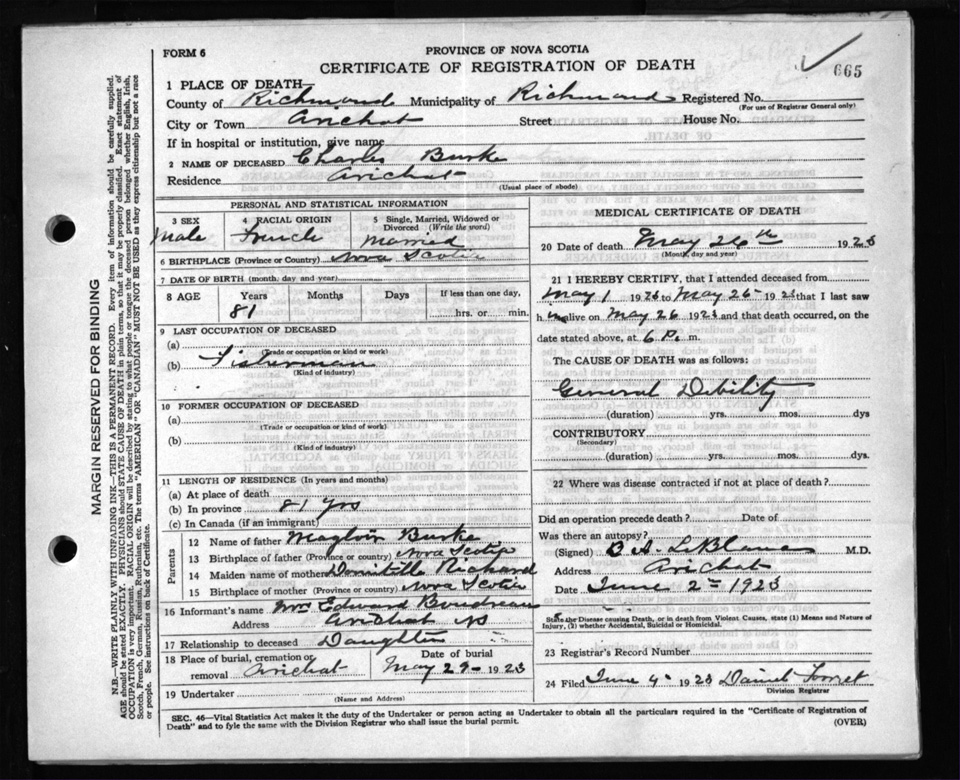 FORM 6
PROVINCE OF NOVA SCOTIA
CERTIFICATE OF REGISTRATION OF DEATH
665
1 PLACE OF DEATH—
County of Richmond Municipality of Richmond Registered No.
(For use of Registrar General only)
City or Town Arichat Street House No.
If in hospital or institution, give name
2 NAME OF DECEASED Charles Burke
Residence Arichat
(Usual place of abode)
PERSONAL AND STATISTICAL INFORMATION
3 SEX 4 RACIAL ORIGIN 5 Single, Married, Widowed or Divorced (Write the word)
Male French Married
6 BIRTHPLACE (Province or Country) Nova Scotia
7 DATE OF BIRTH (month, day and year)
8 AGE Years Months Days If less than one day,
81 hrs. or min.
9 LAST OCCUPATION OF DECEASED
(a)
(Trade or occupation or kind or work)
(b) Fisherman
(Kind of industry)
10 FORMER OCCUPATION OF DECEASED
(a)
(Trade or occupation or kind of work)
(b)
(Kind of industry)
11 LENGTH OF RESIDENCE (In years and months)
(a) At place of death
(b) In province 81 yrs
(c) In Canada (if an immigrant)
Parents
12 Name of father Magloir Burke
13 Birthplace of father (Province or country) Nova Scotia
14 Maiden name of mother Domitille Richard
15 Birthplace of mother (Province or country) Nova Scotia
16 Informant's name Mrs Edward Boudreau
Address Arichat NS
17 Relationship to deceased Daughter
18 Place of burial, cremation or removal Arichat Date of burial May 29 1923
19 Undertaker
(Name and Address)
MEDICAL CERTIFICATE OF DEATH
20 Date of death May 26th 1923
(Month, day and year)
21 I HEREBY CERTIFY, that I attended deceased from
May 1 1923 to May 26 1923 that I last saw
h im alive on May 26 1923 and that death occurred, on the
date stated above, at 6 P. m.
The CAUSE OF DEATH was as follows:
General Debility
(duration) yrs. mos. dys
CONTRIBUTORY
(Secondary)
(duration) yrs. mos. dys.
22 Where was disease contracted if not at place of death?
Did an operation precede death? Date of
Was there an autopsy?
(Signed) B A LeBlanc M.D.
Address Arichat
Date June 2nd 1923
State the Disease causing Death, or in death from Violent Causes, state (1) Means and Nature of Injury, (2) whether Accidental, Suicidal or Homicidal.
23 Registrar's Record Number
24 Filed June 4 1923 Daniel
Division Registrar
SEC. 46—Vital Statistics Act makes it the duty of the Undertaker or person acting as Undertaker to obtain all the particulars required in the "Certificate of Registration of
Death" and to fyle the same with the Division Registrar who shall issue the burial permit.
(OVER)
MARGIN RESERVED FOR BINDING
N.B.—WRITE PLAINLY WITH UNFADING INK—THIS IS A PERMANENT RECORD. Every item of information should be carefully supplied.
AGE should be stated EXACTLY. PHYSICIANS should STATE CAUSE OF DEATH in plain terms, so that it may be properly classified. Exact statement of
OCCUPATION is very important. RACIAL ORIGIN will be described by stating to what people or tongue the deceased person belonged, whether English, Irish,
Scotch, French, German, Russian, Ruthenian, etc. The terms "AMERICAN" OR "CANADIAN" MUST NOT BE USED as they express citizenship but not a race
or people. See instructions on back of Certificate.